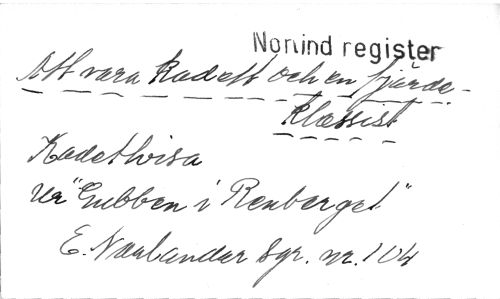 Nonind register
Att vara kadett och en fjärde-
klassist
Kadettvisa
Ur "Gubben i Renberget"
E. Naalander Sgr. nr. 104